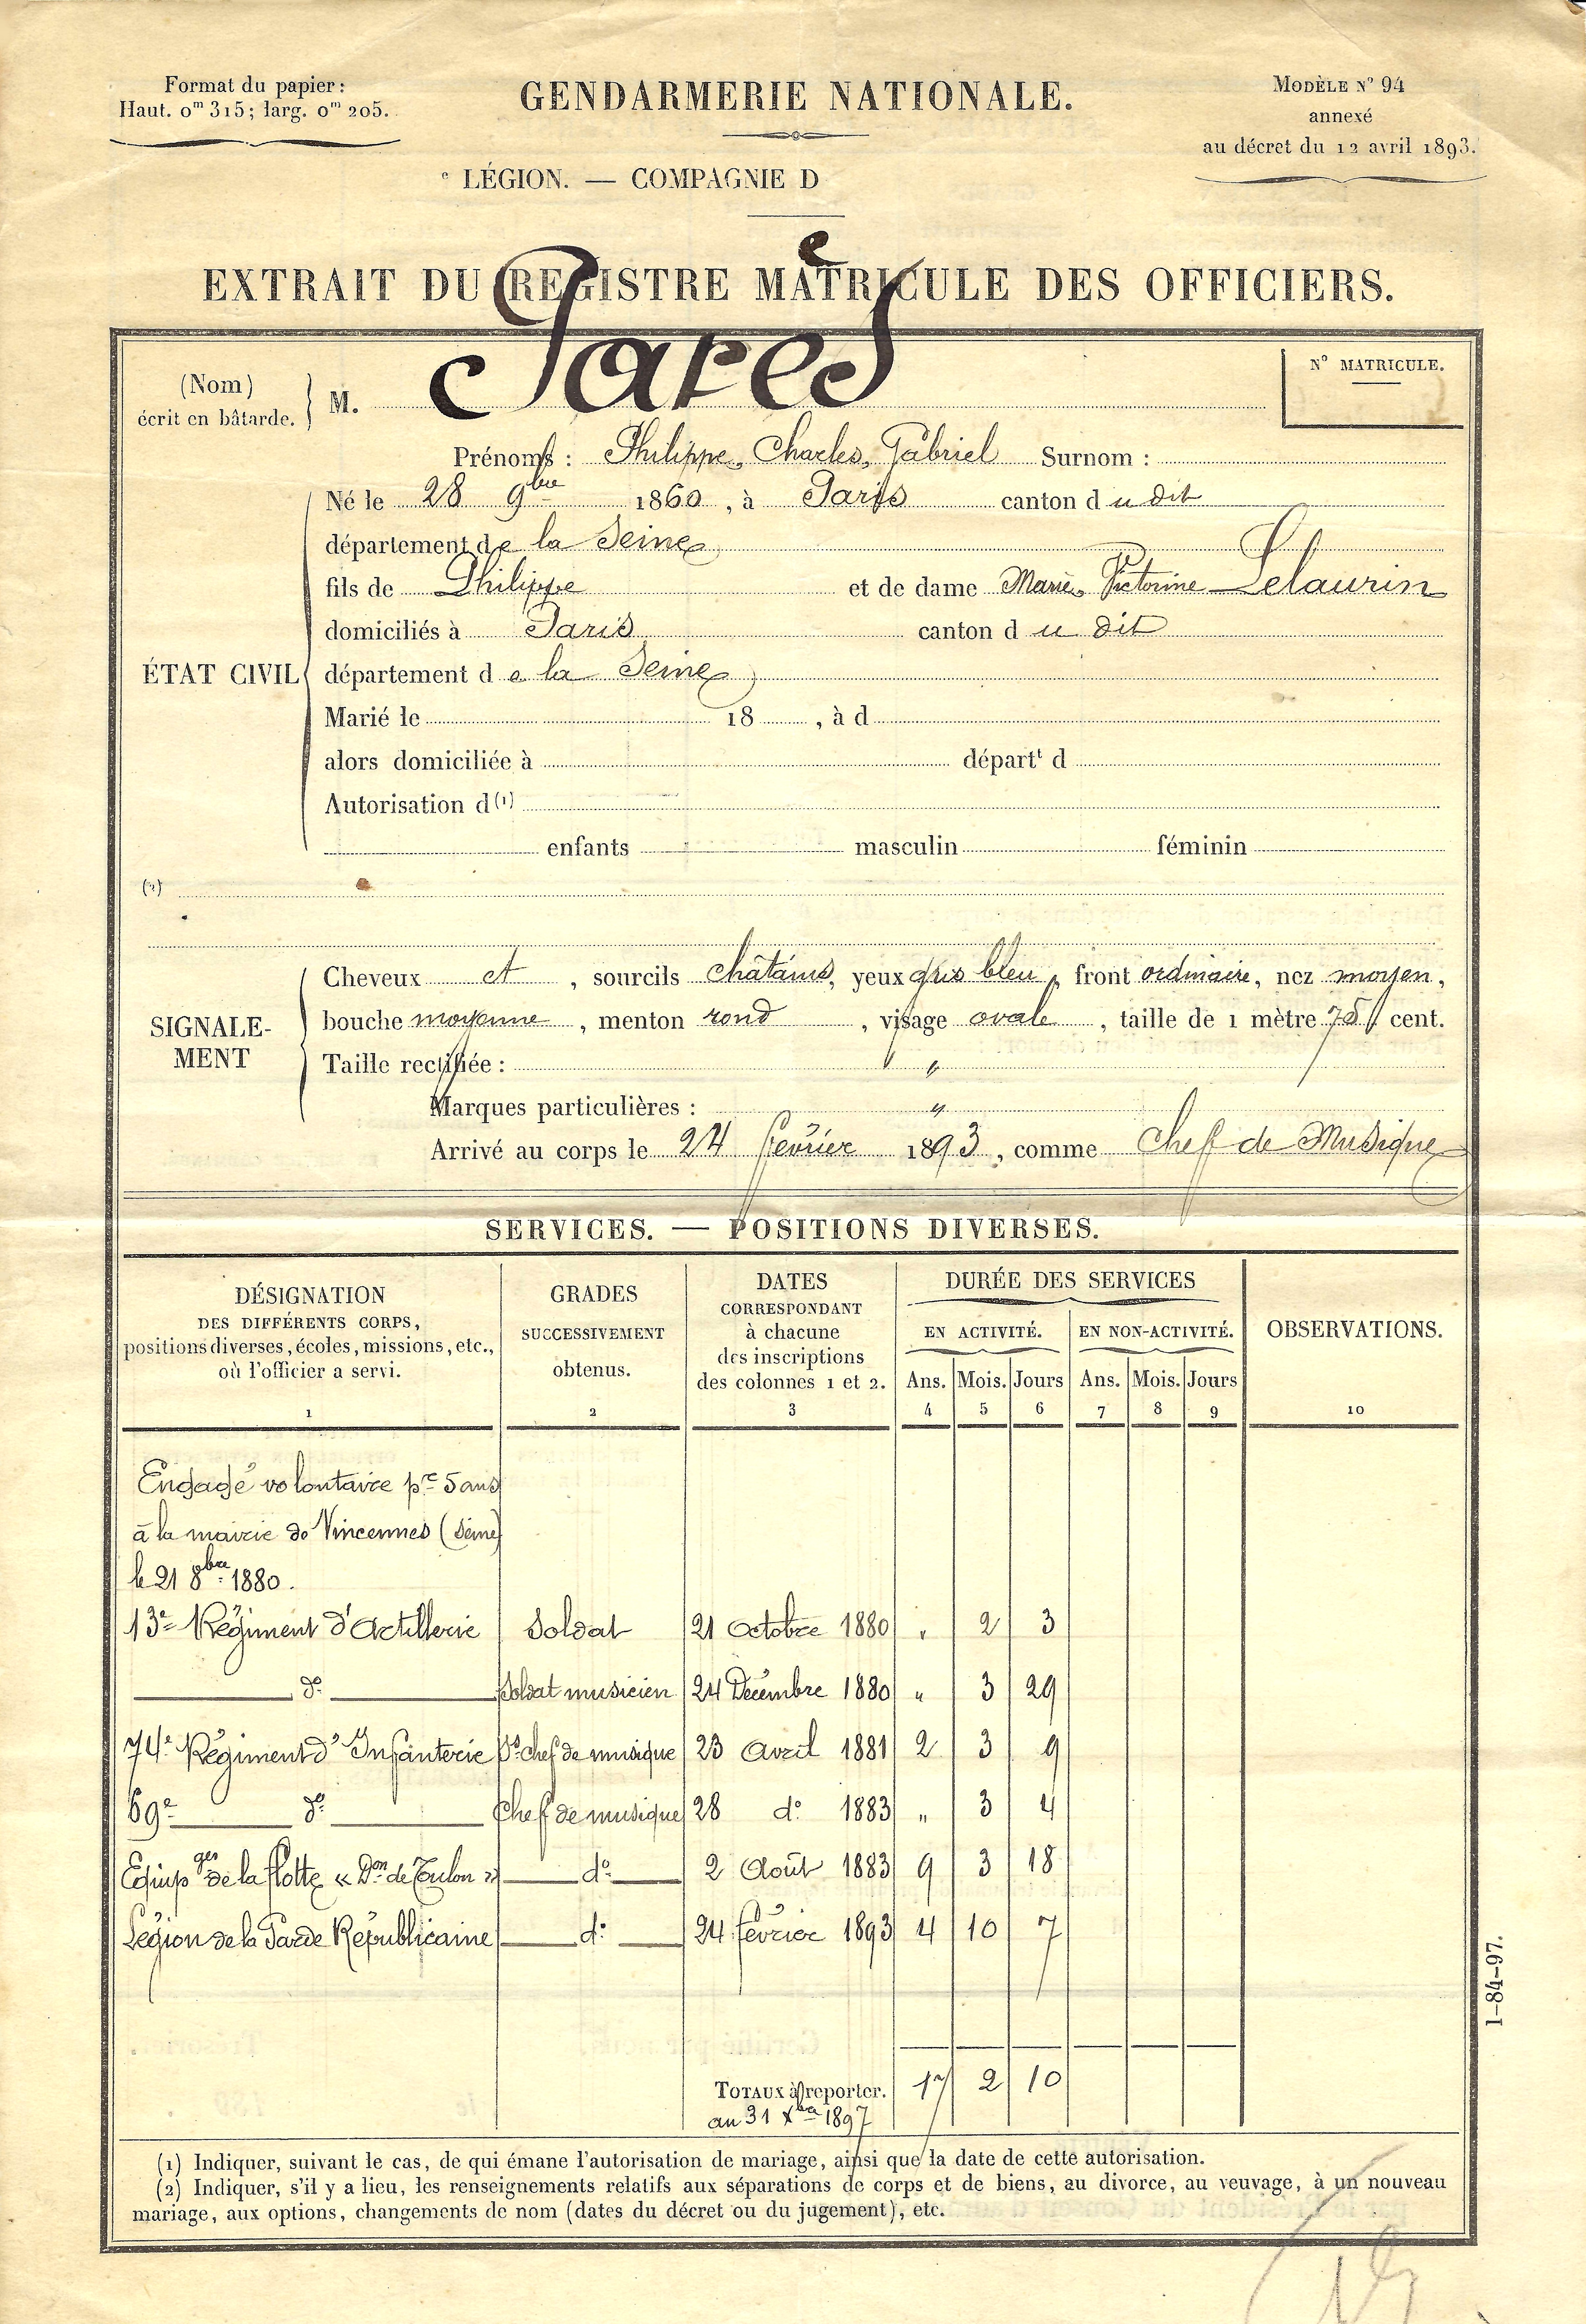 Format du papier :
Haut. 0m 315 ; larg. 0m 205.
GENDARMERIE NATIONALE.
MODÈLE N° 94
annexé
au décret du 12 avril 1893.
e LÉGION. — COMPAGNIE D
EXTRAIT DU REGISTRE MATRICULE DES OFFICIERS.
(Nom)
écrit en bâtarde.
M. Parès
N° MATRICULE.
Prénoms : Philippe, Charles, Gabriel Surnom :
Né le 28 9bre 1860, à Paris canton du dit
département de la Seine
fils de Philippe et de dame Marie, Victorine Lelaurin
domiciliés à Paris canton du dit
ÉTAT CIVIL
département de la Seine
Marié le 18 , à d
alors domiciliée à départt d
Autorisation d(1)
enfants masculin féminin
(2)
SIGNALE-
MENT
Cheveux et , sourcils châtains, yeux gris bleu, front ordinaire, nez moyen,
bouche moyenne , menton rond , visage ovale , taille de 1 mètre 75 cent.
Taille rectifiée : "
Marques particulières : "
Arrivé au corps le 24 février 1893, comme Chef de Musique
SERVICES. — POSITIONS DIVERSES.
DÉSIGNATION
DES DIFFÉRENTS CORPS,
positions diverses, écoles, missions, etc.,
où l'officier a servi.
1
GRADES
SUCCESSIVEMENT
obtenus.
2
DATES
CORRESPONDANT
à chacune
des inscriptions
des colonnes 1 et 2.
3
DURÉE DES SERVICES
EN ACTIVITÉ. EN NON-ACTIVITÉ.
Ans. Mois. Jours Ans. Mois. Jours
4 5 6 7 8 9
OBSERVATIONS.
10
Engagé volontaire pr 5 ans
à la mairie de Vincennes (Seine)
le 21 8bre 1880.
13e Régiment d'Artillerie Soldat 21 Octobre 1880 " 2 3
do Soldat musicien 24 Décembre 1880 " 3 29
74e Régiment d'Infanterie Ss chef de musique 23 Avril 1881 2 3 9
69e do Chef de musique 28 do 1883 " 3 4
Equipges de la flotte « Don de Toulon » do 2 Août 1883 9 3 18
Légion de la Garde Républicaine do 24 février 1893 4 10 7
TOTAUX à reporter. 17 2 10
au 31 Xbre 1897
1-84-97.
(1) Indiquer, suivant le cas, de qui émane l'autorisation de mariage, ainsi que la date de cette autorisation.
(2) Indiquer, s'il y a lieu, les renseignements relatifs aux séparations de corps et de biens, au divorce, au veuvage, à un nouveau
mariage, aux options, changements de nom (dates du décret ou du jugement), etc.